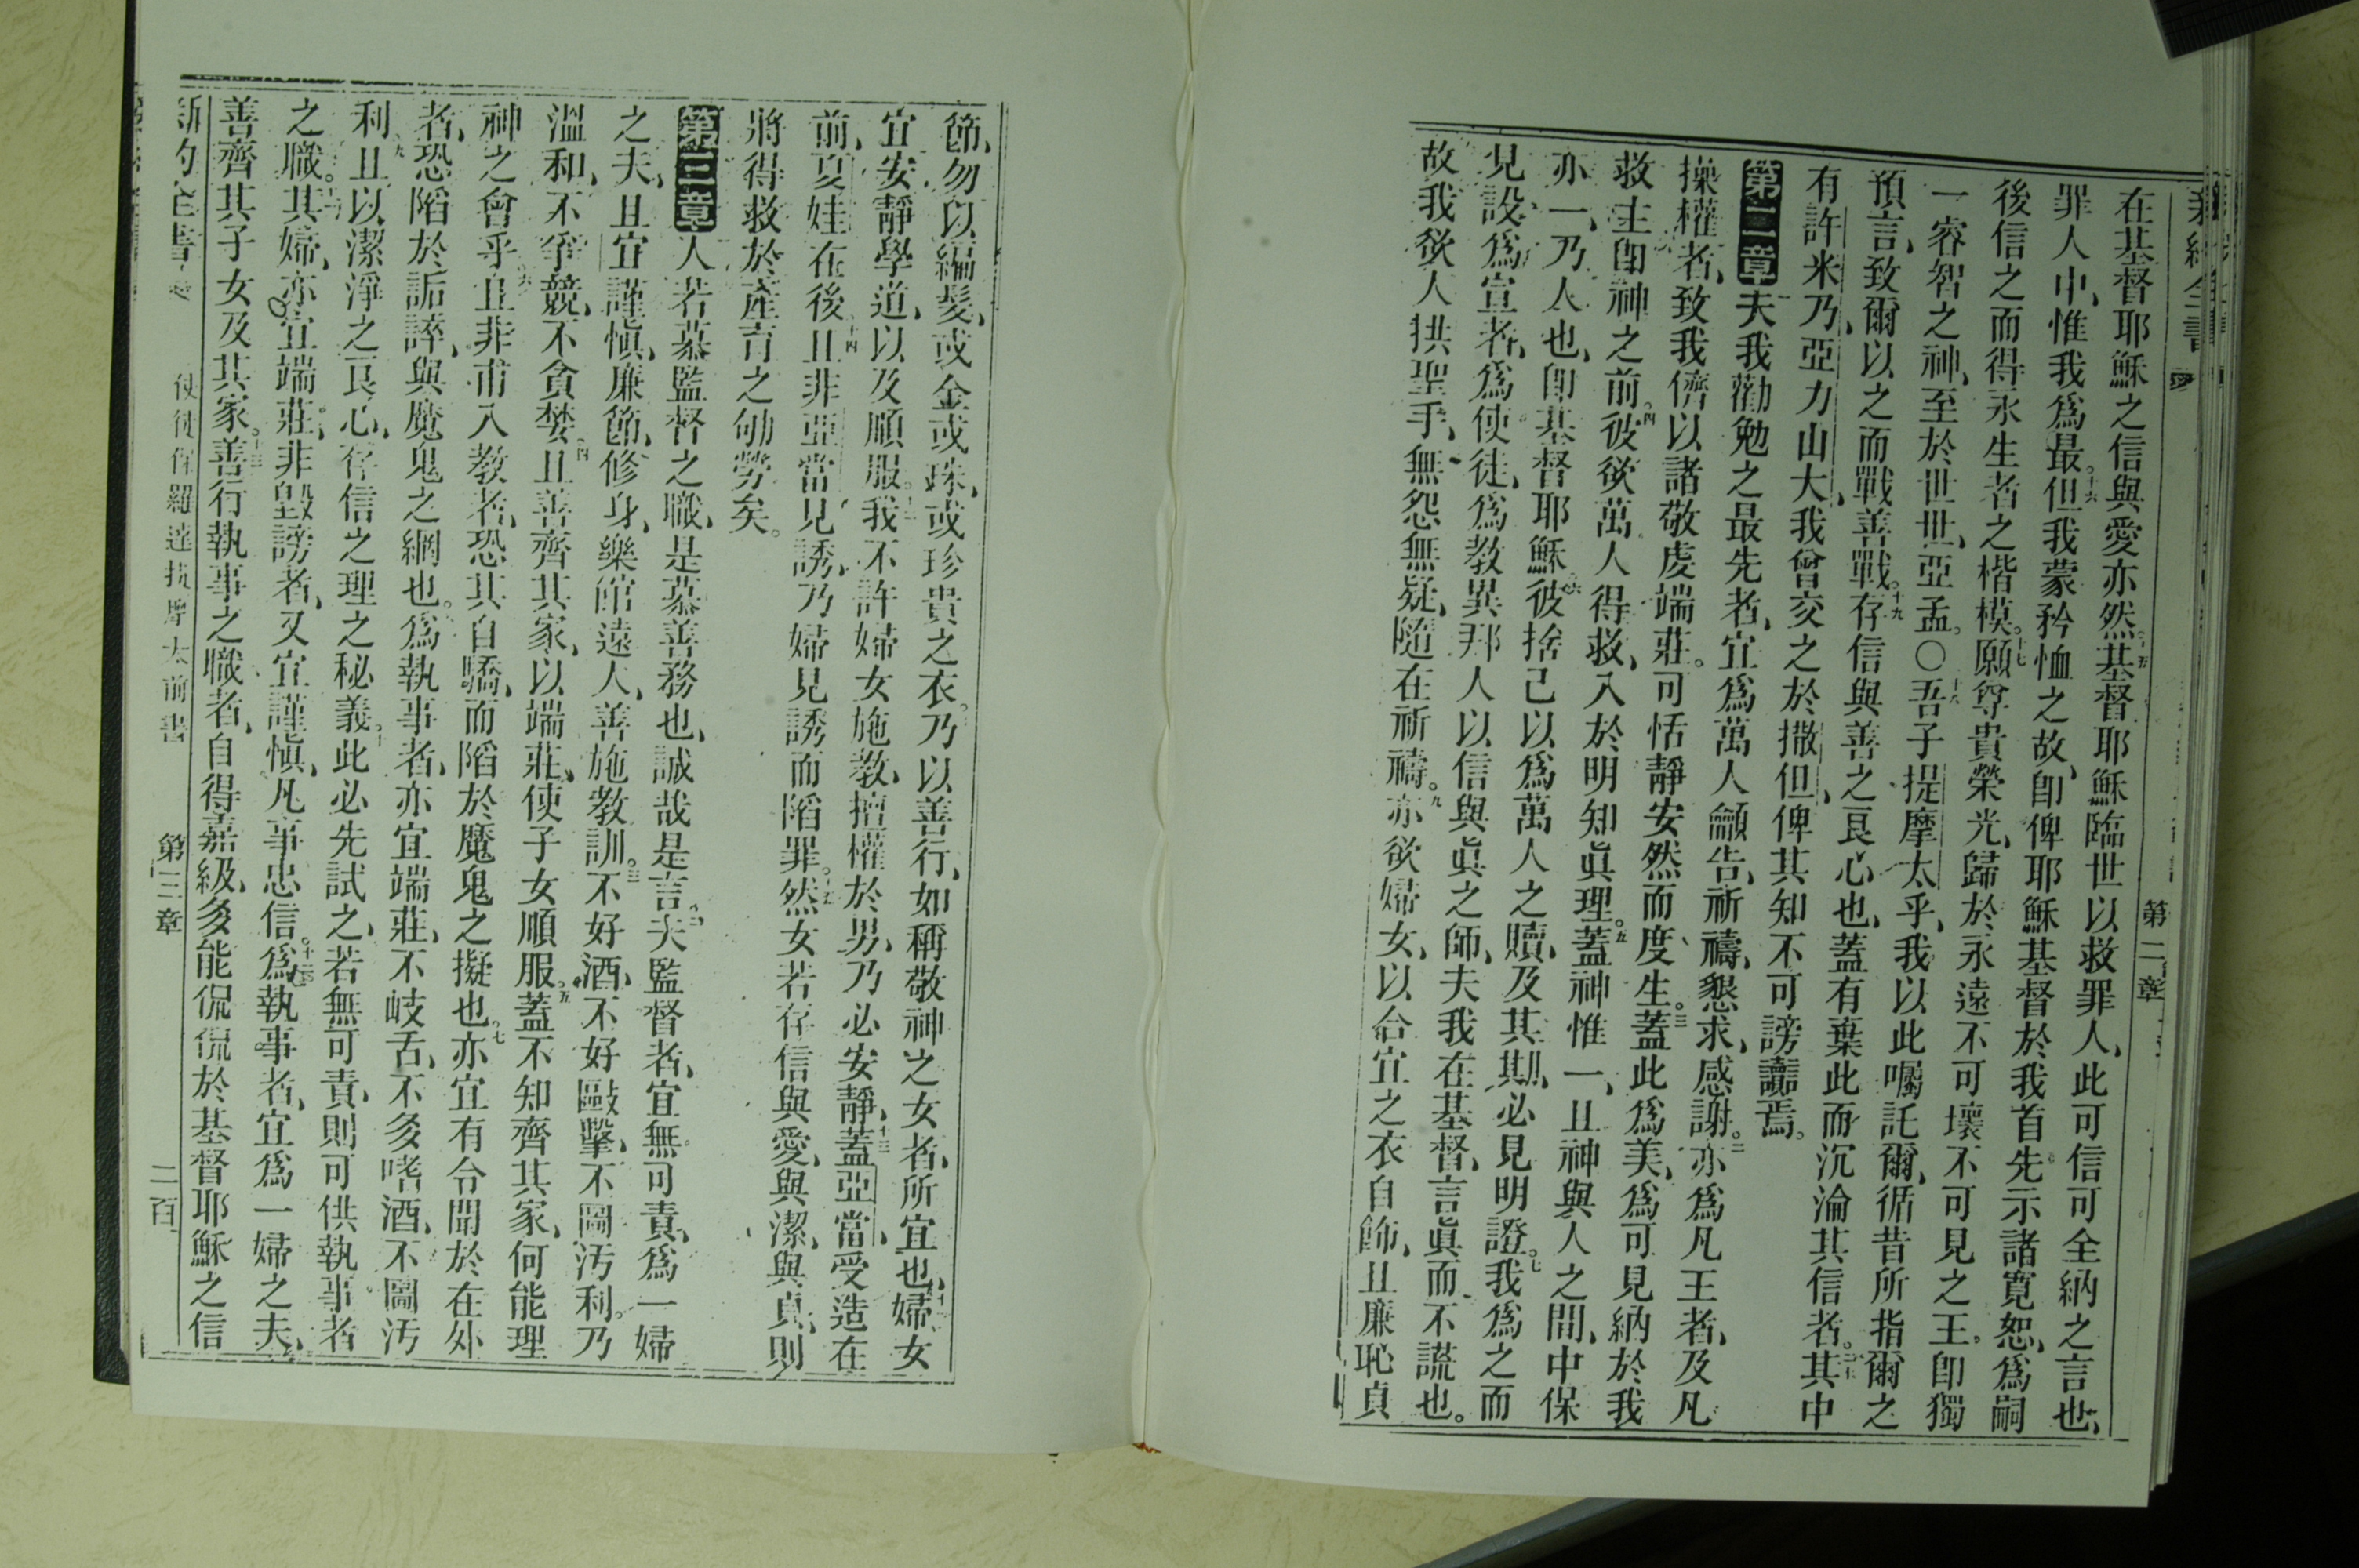 第二章
在基督耶穌之信與愛亦然。十五基督耶穌臨世以救罪人、此可信可全納之言也、
罪人中、惟我爲最。十六但我蒙矜恤之故、卽俾耶穌基督於我首先示諸寬恕、爲嗣
後信之而得永生者之楷模。十七願尊貴榮光、歸於永遠不可壞不可見之王。卽獨
一睿智之神、至於世世、亞孟。〇十八吾子提摩太乎、我以此囑託爾、循昔所指爾之
預言、致爾以之而戰善戰。十九存信與善之良心也、蓋有棄此而沉淪其信者。二十其中
有許米乃、亞力山大、我曾交之於撒但、俾其知不可謗讟焉。
第二章夫我勸勉之最先者、宜爲萬人籲告、祈禱、懇求、感謝。二亦爲凡王者、及凡
操權者、致我儕以諸敬虔端莊。可恬靜安然而度生。三蓋此爲美、爲可見納於我
救主卽神之前。四彼欲萬人得救、入於明知眞理。五蓋神惟一、且神與人之間、中保
亦一、乃人也、卽基督耶穌。六彼捨己以爲萬人之贖、及其期、必見明證。七我爲之而
見設、爲宣者、爲使徒、爲教異邦人以信與眞之師、夫我在基督、言眞而不謊也。
故我欲人拱聖手、無怨無疑、隨在祈禱。九亦欲婦女、以合宜之衣自飾、且廉恥貞
節、勿以編髮、或金或珠、或珍貴之衣。乃以善行、如稱敬神之女者、所宜也、十一婦女
宜安靜學道、以及順服。十二我不許婦女施教、擅權於男、乃必安靜、十三蓋亞當受造在
前、夏娃在後、十四且非亞當見誘、乃婦見誘而陷罪。十五然女若存信與愛、與潔、與貞、則
將得救於產育之劬勞矣。
第三章人若慕監督之職、是慕善務也、誠哉是言。二夫監督者、宜無可責、爲一婦
之夫、且宜謹愼、廉節、修身、樂館遠人、善施教訓。三不好酒、不好毆擊、不圖汚利。乃
溫和、不爭競、不貪婪。四且善齊其家、以端莊、使子女順服。五蓋不知齊其家、何能理
神之會乎、六且非甫入教者、恐其自驕、而陷於魔鬼之擬也。七亦宜有令聞於在外
者、恐陷於詬誶、與魔鬼之網也。爲執事者、亦宜端莊、不岐舌、不多嗜酒、不圖汚
利。九且以潔淨之良心、存信之理之秘義。十此必先試之、若無可責、則可供執事者
之職。十一其婦、亦宜端莊、非毀謗者、又宜謹愼、凡事忠信。十二爲執事者、宜爲一婦之夫、
善齊其子女及其家。十三善行執事之職者、自得嘉級、多能侃侃於基督耶穌之信
使徒保羅達提摩太前書 第三章 二百